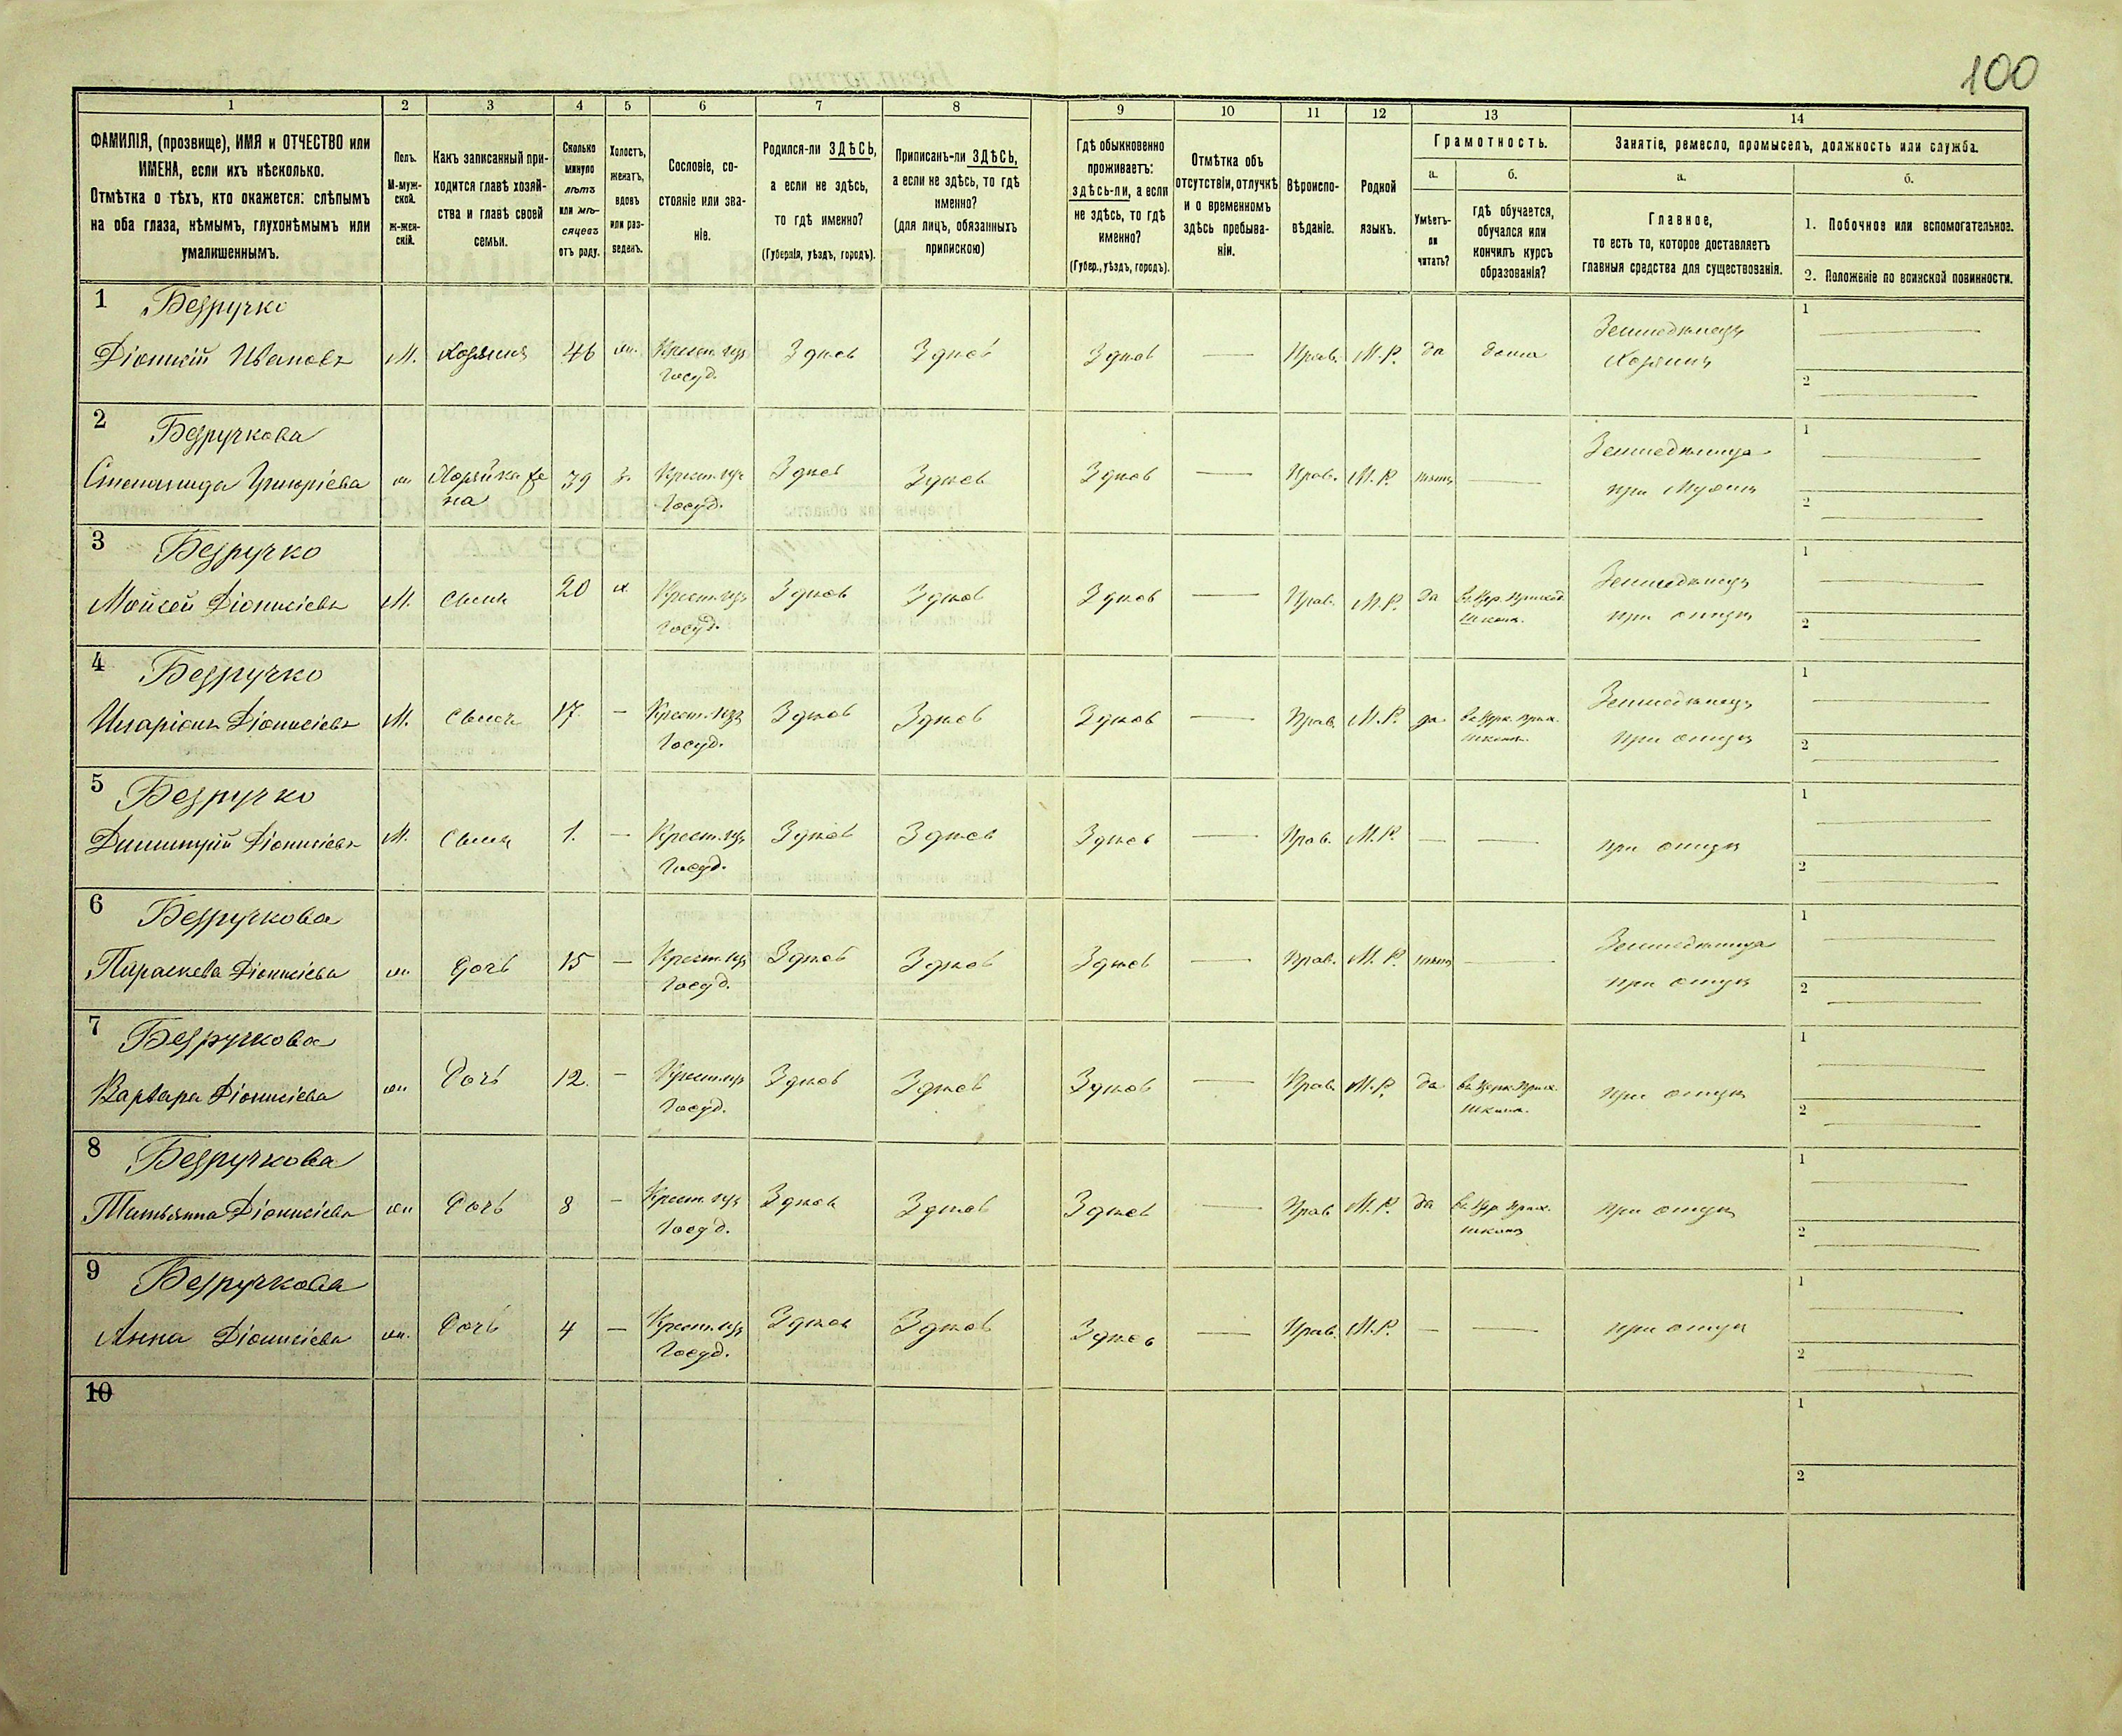 100
1 2 3 4 5 6 7 8 9 10 11 12 13 14
ФАМИЛІЯ, (прозвище), ИМЯ и ОТЧЕСТВО или
ИМЕНА, если ихъ нѣсколько.
Отмѣтка о тѣхъ, кто окажется: слѣпымъ
на оба глаза, нѣмымъ, глухонѣмымъ или
умалишеннымъ.
Полъ.
М-муж-
ской.
ж-жен-
скій.
Какъ записанный при-
ходится главѣ хозяй-
ства и главѣ своей
семьи.
Сколько
минуло
лѣтъ
или мѣ-
сяцевъ
отъ роду.
Холостъ,
женатъ,
вдовъ
или раз-
веденъ.
Сословіе, со-
стояніе или зва-
ніе.
Родился-ли ЗДѢСЬ,
а если не здѣсь,
то гдѣ именно?
(Губернія, уѣздъ, городъ).
Приписанъ-ли ЗДѢСЬ,
а если не здѣсь, то гдѣ
именно?
(для лицъ, обязанныхъ
припискою)
Гдѣ обыкновенно
проживаетъ:
здѣсь-ли, а если
не здѣсь, то гдѣ
именно?
(Губер., уѣздъ, городъ).
Отмѣтка объ
отсутствіи, отлучкѣ
и о временномъ
здѣсь пребыва-
ніи.
Вѣроиспо-
вѣданіе.
Родной
языкъ.
Грамотность.
а.
Умѣетъ-
ли
читать?
б.
гдѣ обучается,
обучался или
кончилъ курсъ
образованія?
Занятіе, ремесло, промыселъ, должность или служба.
а.
Главное,
то есть то, которое доставляетъ
главныя средства для существованія.
б.
1. Побочное или вспомогательное.
2. Положеніе по воинской повинности.
1 Безручко
Діонисій Ивановъ М. Хозяинъ 46 жн. Крест. изъ Здѣсь Здѣсь Здѣсь — Прав. М.Р. да дома Земледѣлецъ
Госуд. Хозяинъ
1
2
2 Безручкова
Степанида Григоріева ж Хозяйка же 39 з. Крест. изъ Здѣсь Здѣсь Здѣсь — Прав. М.Р. нѣтъ — Земледѣлица
на Госуд. при Мужѣ
1
2
3 Безручко
Мойсей Діонисіевъ М. Сынъ 20 х. Крест. изъ Здѣсь Здѣсь Здѣсь — Прав. М.Р. да въ Цер. приход. Земледѣлецъ
Госуд. школѣ. при отцѣ
1
2
4 Безручко
Иларіонъ Діонисіевъ М. Сынъ 17 — Крест. изъ Здѣсь Здѣсь Здѣсь — Прав. М.Р. да въ Церк. прих. Земледѣлецъ
Госуд. школѣ. при отцѣ
1
2
5 Безручко
Димитрій Діонисіевъ М. Сынъ 1. — Крест. изъ Здѣсь Здѣсь Здѣсь — Прав. М.Р. — — при отцѣ
Госуд.
1
2
6 Безручкова
Параскева Діонисіева ж Дочь 15 — Крест. изъ Здѣсь Здѣсь Здѣсь — Прав. М.Р. нѣтъ — Земледѣлица
Госуд. при отцѣ
1
2
7 Безручкова
Варвара Діонисіева ж Дочь 12. — Крест. изъ Здѣсь Здѣсь Здѣсь — Прав. М.Р. да въ Церк. прих. при отцѣ
Госуд. школѣ.
1
2
8 Безручкова
Татьянна Діонисіева ж Дочь 8 — Крест. изъ Здѣсь Здѣсь Здѣсь — Прав. М.Р. да въ Цер. прих. при отцѣ
Госуд. школѣ
1
2
9 Безручкова
Анна Діонисіева ж. Дочь 4 — Крест. изъ Здѣсь Здѣсь Здѣсь — Прав. М.Р. — — при отцѣ
Госуд.
1
2
10
1
2